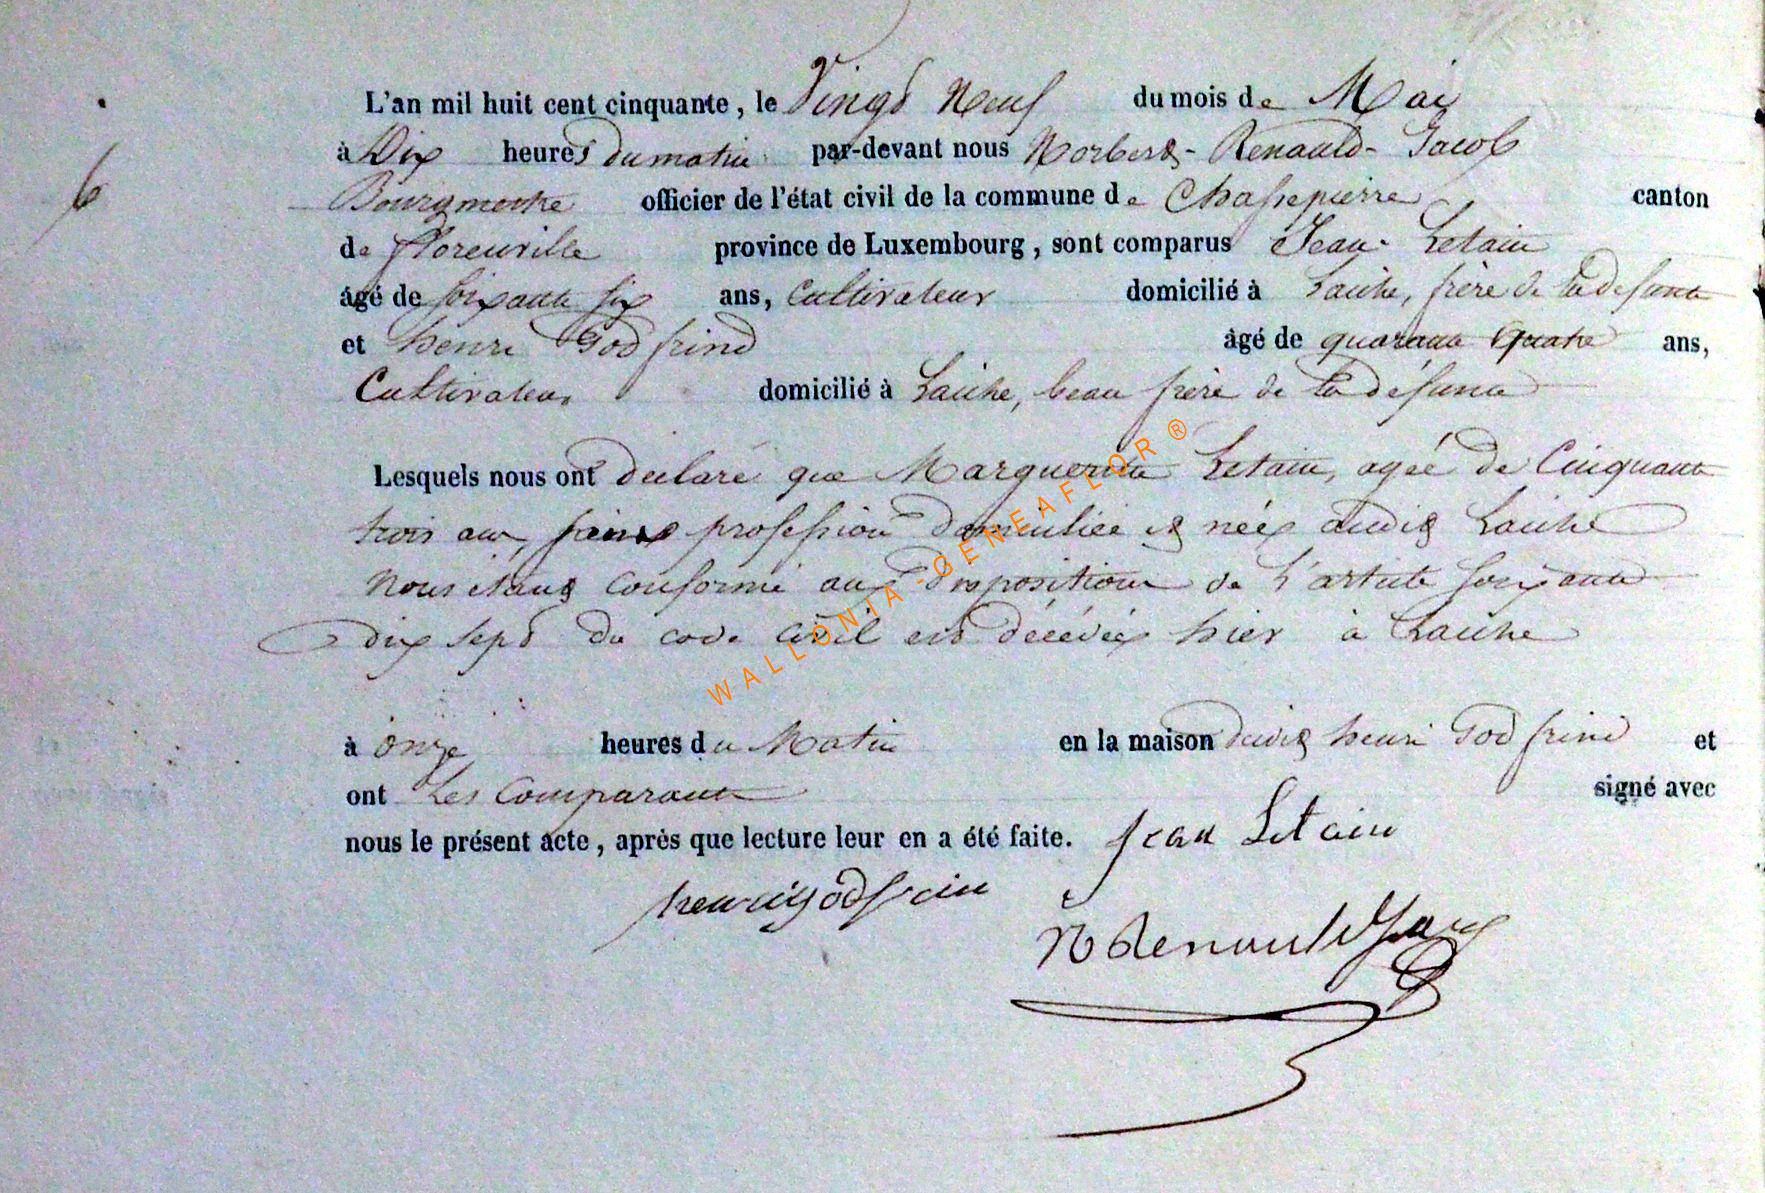 L'an mil huit cent cinquante, le Vingt Neuf du mois de Mai
à Dix heures du matin par-devant nous Norbert-Renauld-Jacob
6
Bourgmestre officier de l'état civil de la commune de Chassepierre canton
de florenville province de Luxembourg, sont comparus Jean Letain
âgé de soixante six ans, Cultivateur domicilié à Laiche, frère de la défunte
et henri Godfrind âgé de quarante quatre ans,
Cultivateur domicilié à Laiche, beau frère de la défunte
Lesquels nous ont déclaré que Marguerite Letain, agée de Cinquante
trois ans, sans profession domiciliée et née audit Laiche
Nous étant conformé aux dispositions de l'article soixante
dix sept du code civil est décédée hier à Laiche
à onze heures du Matin en la maison dudit henri Godfrind et
ont Les Comparants signé avec
nous le présent acte, après que lecture leur en a été faite. Jean Letain
henri godfrin
N Renauld Jacob
WALLONIA-GENEAFLOR ®